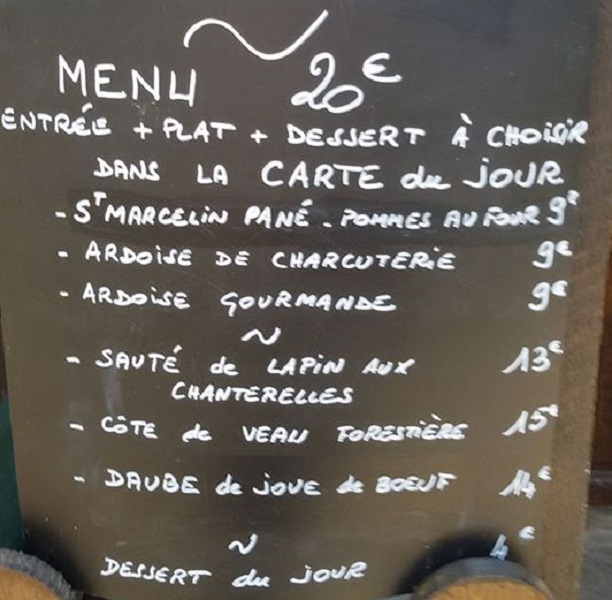 MENU 20€
ENTRÉE + PLAT + DESSERT À CHOISIR
DANS LA CARTE du JOUR
- ST MARCELIN PANÉ - POMMES AU FOUR 9€
- ARDOISE DE CHARCUTERIE 9€
- ARDOISE GOURMANDE 9€
~
- SAUTÉ de LAPIN AUX 13€
CHANTERELLES
- CÔTE de VEAU FORESTIÈRE 15€
- DAUBE de JOUE de BOEUF 14€
~
DESSERT du JOUR 4€